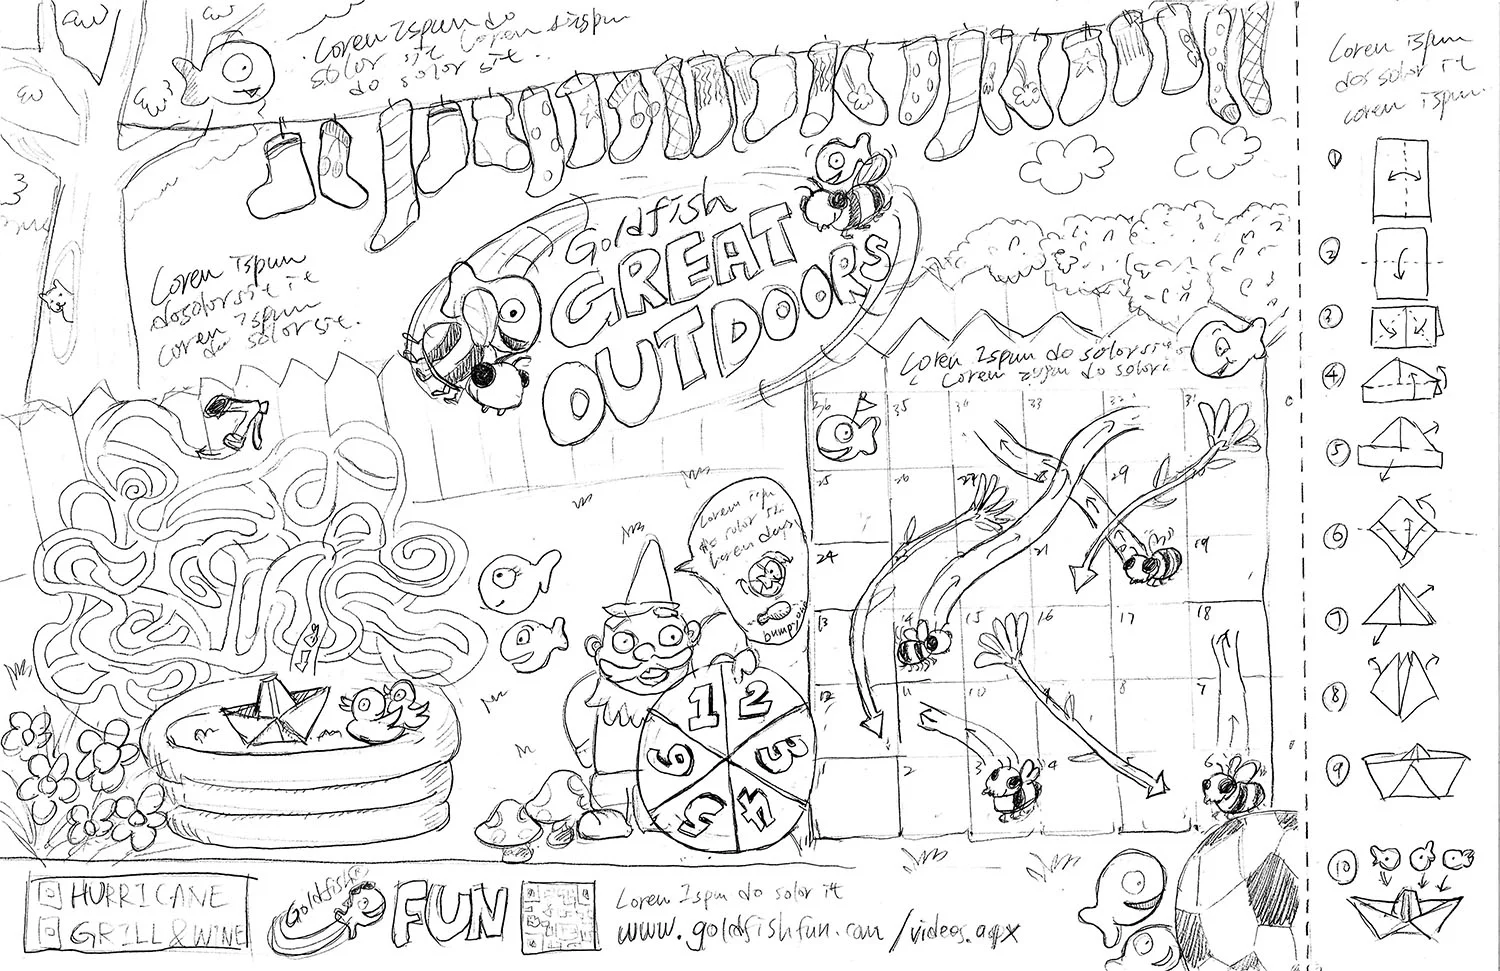 Lorem Ispum do
solor sit Lorem sispum
do solor sit.
Lorem ispum
dos solor it
lorem ispum.
Goldfish
GREAT
OUTDOORS
Lorem ispum
dosolor sit it
Lorem Ispum
do solor sit.
Lorem Ispum do solor sit
Lorem do solor
36 35 34 33 32 31
25 26 27 29
24 21 19
13 14 15 16 17 18
12 11 10 8 7
2 3 4 6
Lorem ispum
do solor sit
Lorem
bumpy
1 2 3 4 5 6
1
2
3
4
5
6
7
8
9
10
HURRICANE
GRILL & WINE
Goldfish
FUN
Lorem Ispum do solor it
www.goldfishfun.com/videos.aspx